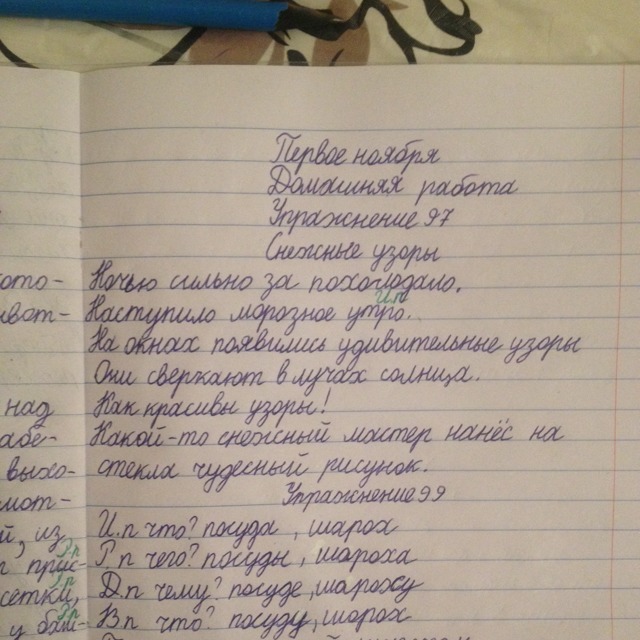 Первое ноября
Домашняя работа
Упражнение 97
Снежные узоры
кото-
Ночью сильно за похолодало.
И.п
Наступило морозное утро.
На окнах появились удивительные узоры
Они сверкают в лучах солнца.
над
Как красивы узоры!
Какой-то снежный мастер нанёс на
выхо-
стекла чудесный рисунок.
Упражнение 99
й, из
И.п что? посуда, шорох
Р.п
Р.п чего? посуды, шороха
сетки,
Д.п чему? посуде, шороху
В.п что? посуду, шорох